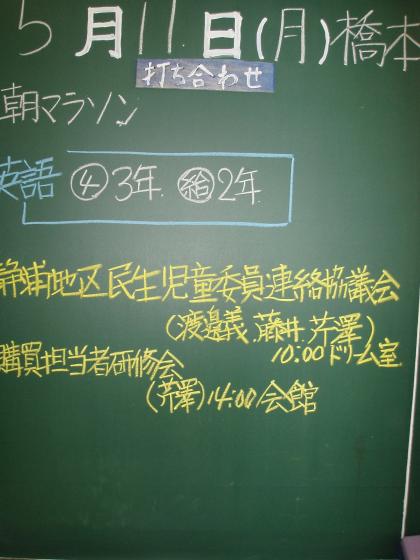 5月11日(月)橋本
打ち合わせ
朝マラソン
英語 ④3年 ㊕2年
静浦地区民生児童委員連絡協議会
(渡邉義.藤井.芹澤)
10:00ドリーム室
購買担当者研修会
(芹澤)14:00会館